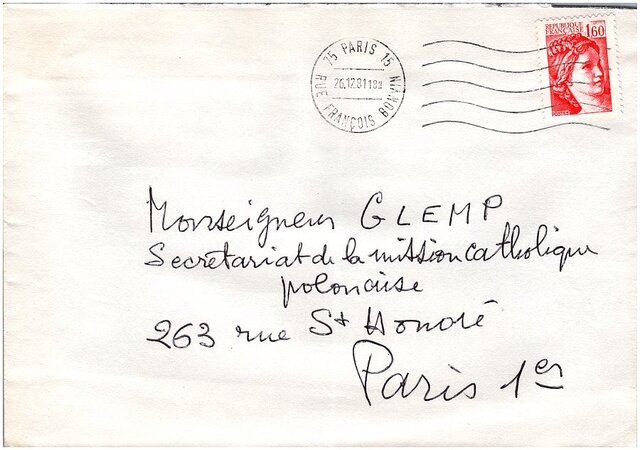 75 PARIS 15
RUE FRANÇOIS BONVIN
26.12.81 18H
REPUBLIQUE
FRANÇAISE
1,60
POSTES
Monseigneur GLEMP
Secretariat de la mission catholique
polonaise
263 rue St Honoré
Paris 1er